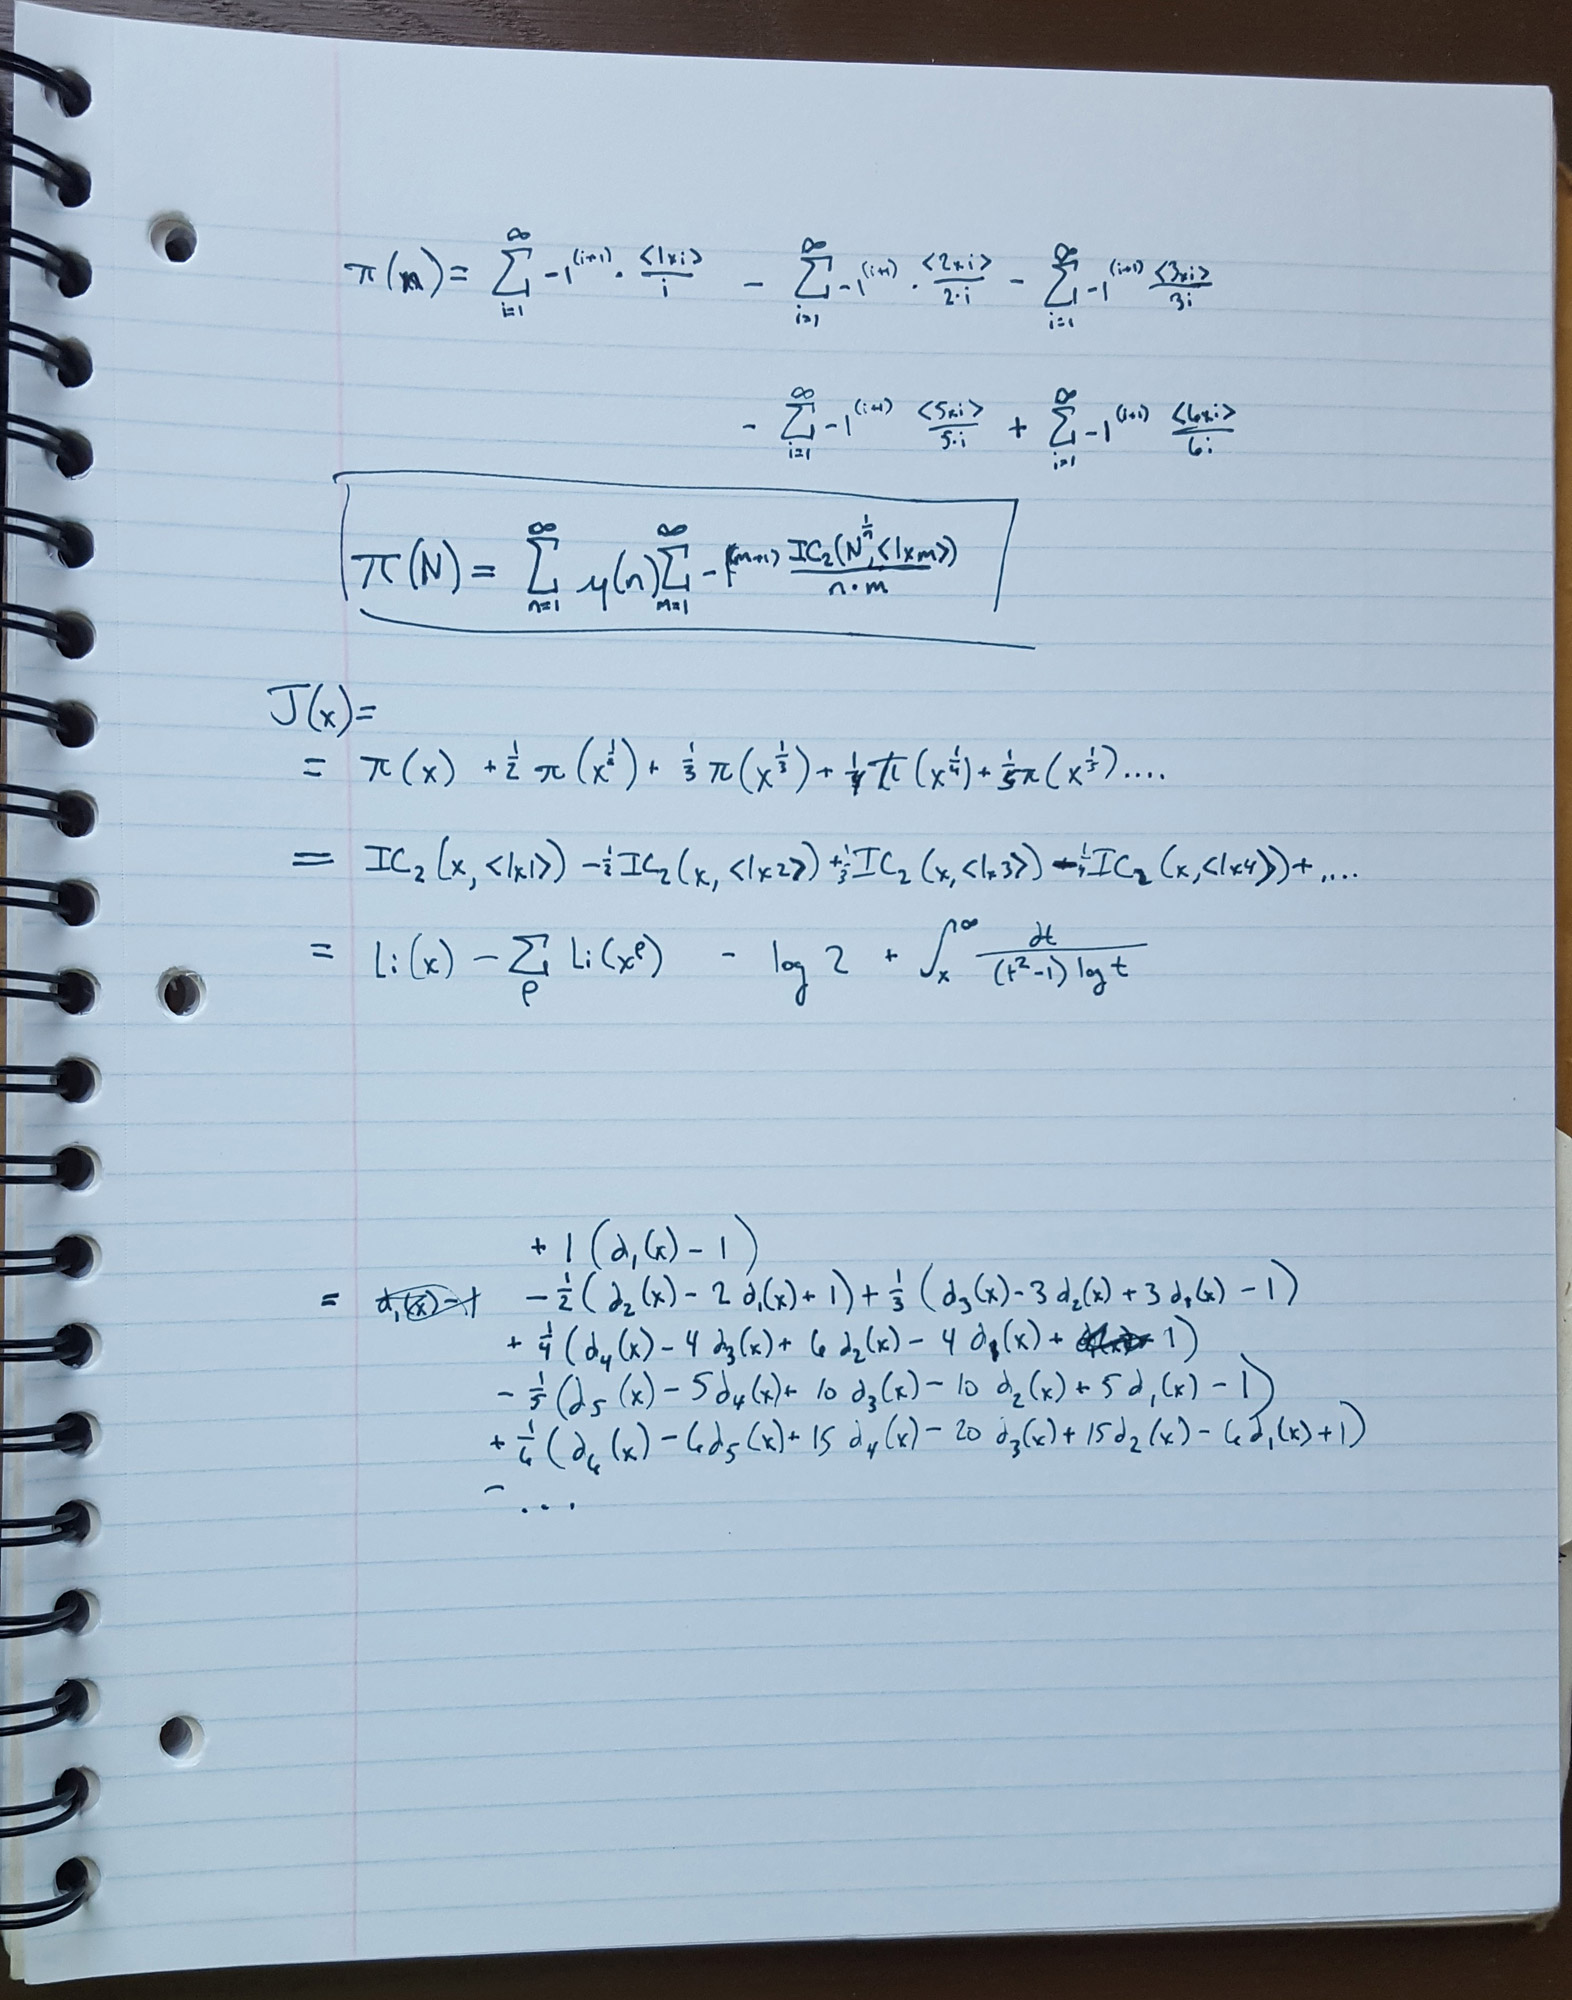 π(n) = ∑_{i=1}^{∞} -1^{(i+1)} · <1xi>/i - ∑_{i=1}^{∞} -1^{(i+1)} · <2xi>/2·i - ∑_{i=1}^{∞} -1^{(i+1)} <3xi>/3i
- ∑_{i=1}^{∞} -1^{(i+1)} <5xi>/5·i + ∑_{i=1}^{∞} -1^{(i+1)} <6xi>/6i
π(N) = ∑_{n=1}^{∞} μ(n) ∑_{m=1}^{∞} -1^{(m+1)} IC₂(N^{1/n}, <1xm>)/n·m
J(x) =
= π(x) + 1/2 π(x^{1/2}) + 1/3 π(x^{1/3}) + 1/4 π(x^{1/4}) + 1/5 π(x^{1/5}) ....
= IC₂(x, <1x1>) - 1/2 IC₂(x, <1x2>) + 1/3 IC₂(x, <1x3>) - 1/4 IC₂(x, <1x4>) + ....
= Li(x) - ∑_{ρ} Li(x^ρ) - log 2 + ∫_{x}^{∞} dt/(t²-1) log t
+ 1 (d₁(x) - 1)
= - 1/2 (d₂(x) - 2 d₁(x) + 1) + 1/3 (d₃(x) - 3 d₂(x) + 3 d₁(x) - 1)
+ 1/4 (d₄(x) - 4 d₃(x) + 6 d₂(x) - 4 d₁(x) + 1)
- 1/5 (d₅(x) - 5 d₄(x) + 10 d₃(x) - 10 d₂(x) + 5 d₁(x) - 1)
+ 1/6 (d₆(x) - 6 d₅(x) + 15 d₄(x) - 20 d₃(x) + 15 d₂(x) - 6 d₁(x) + 1)
- ...